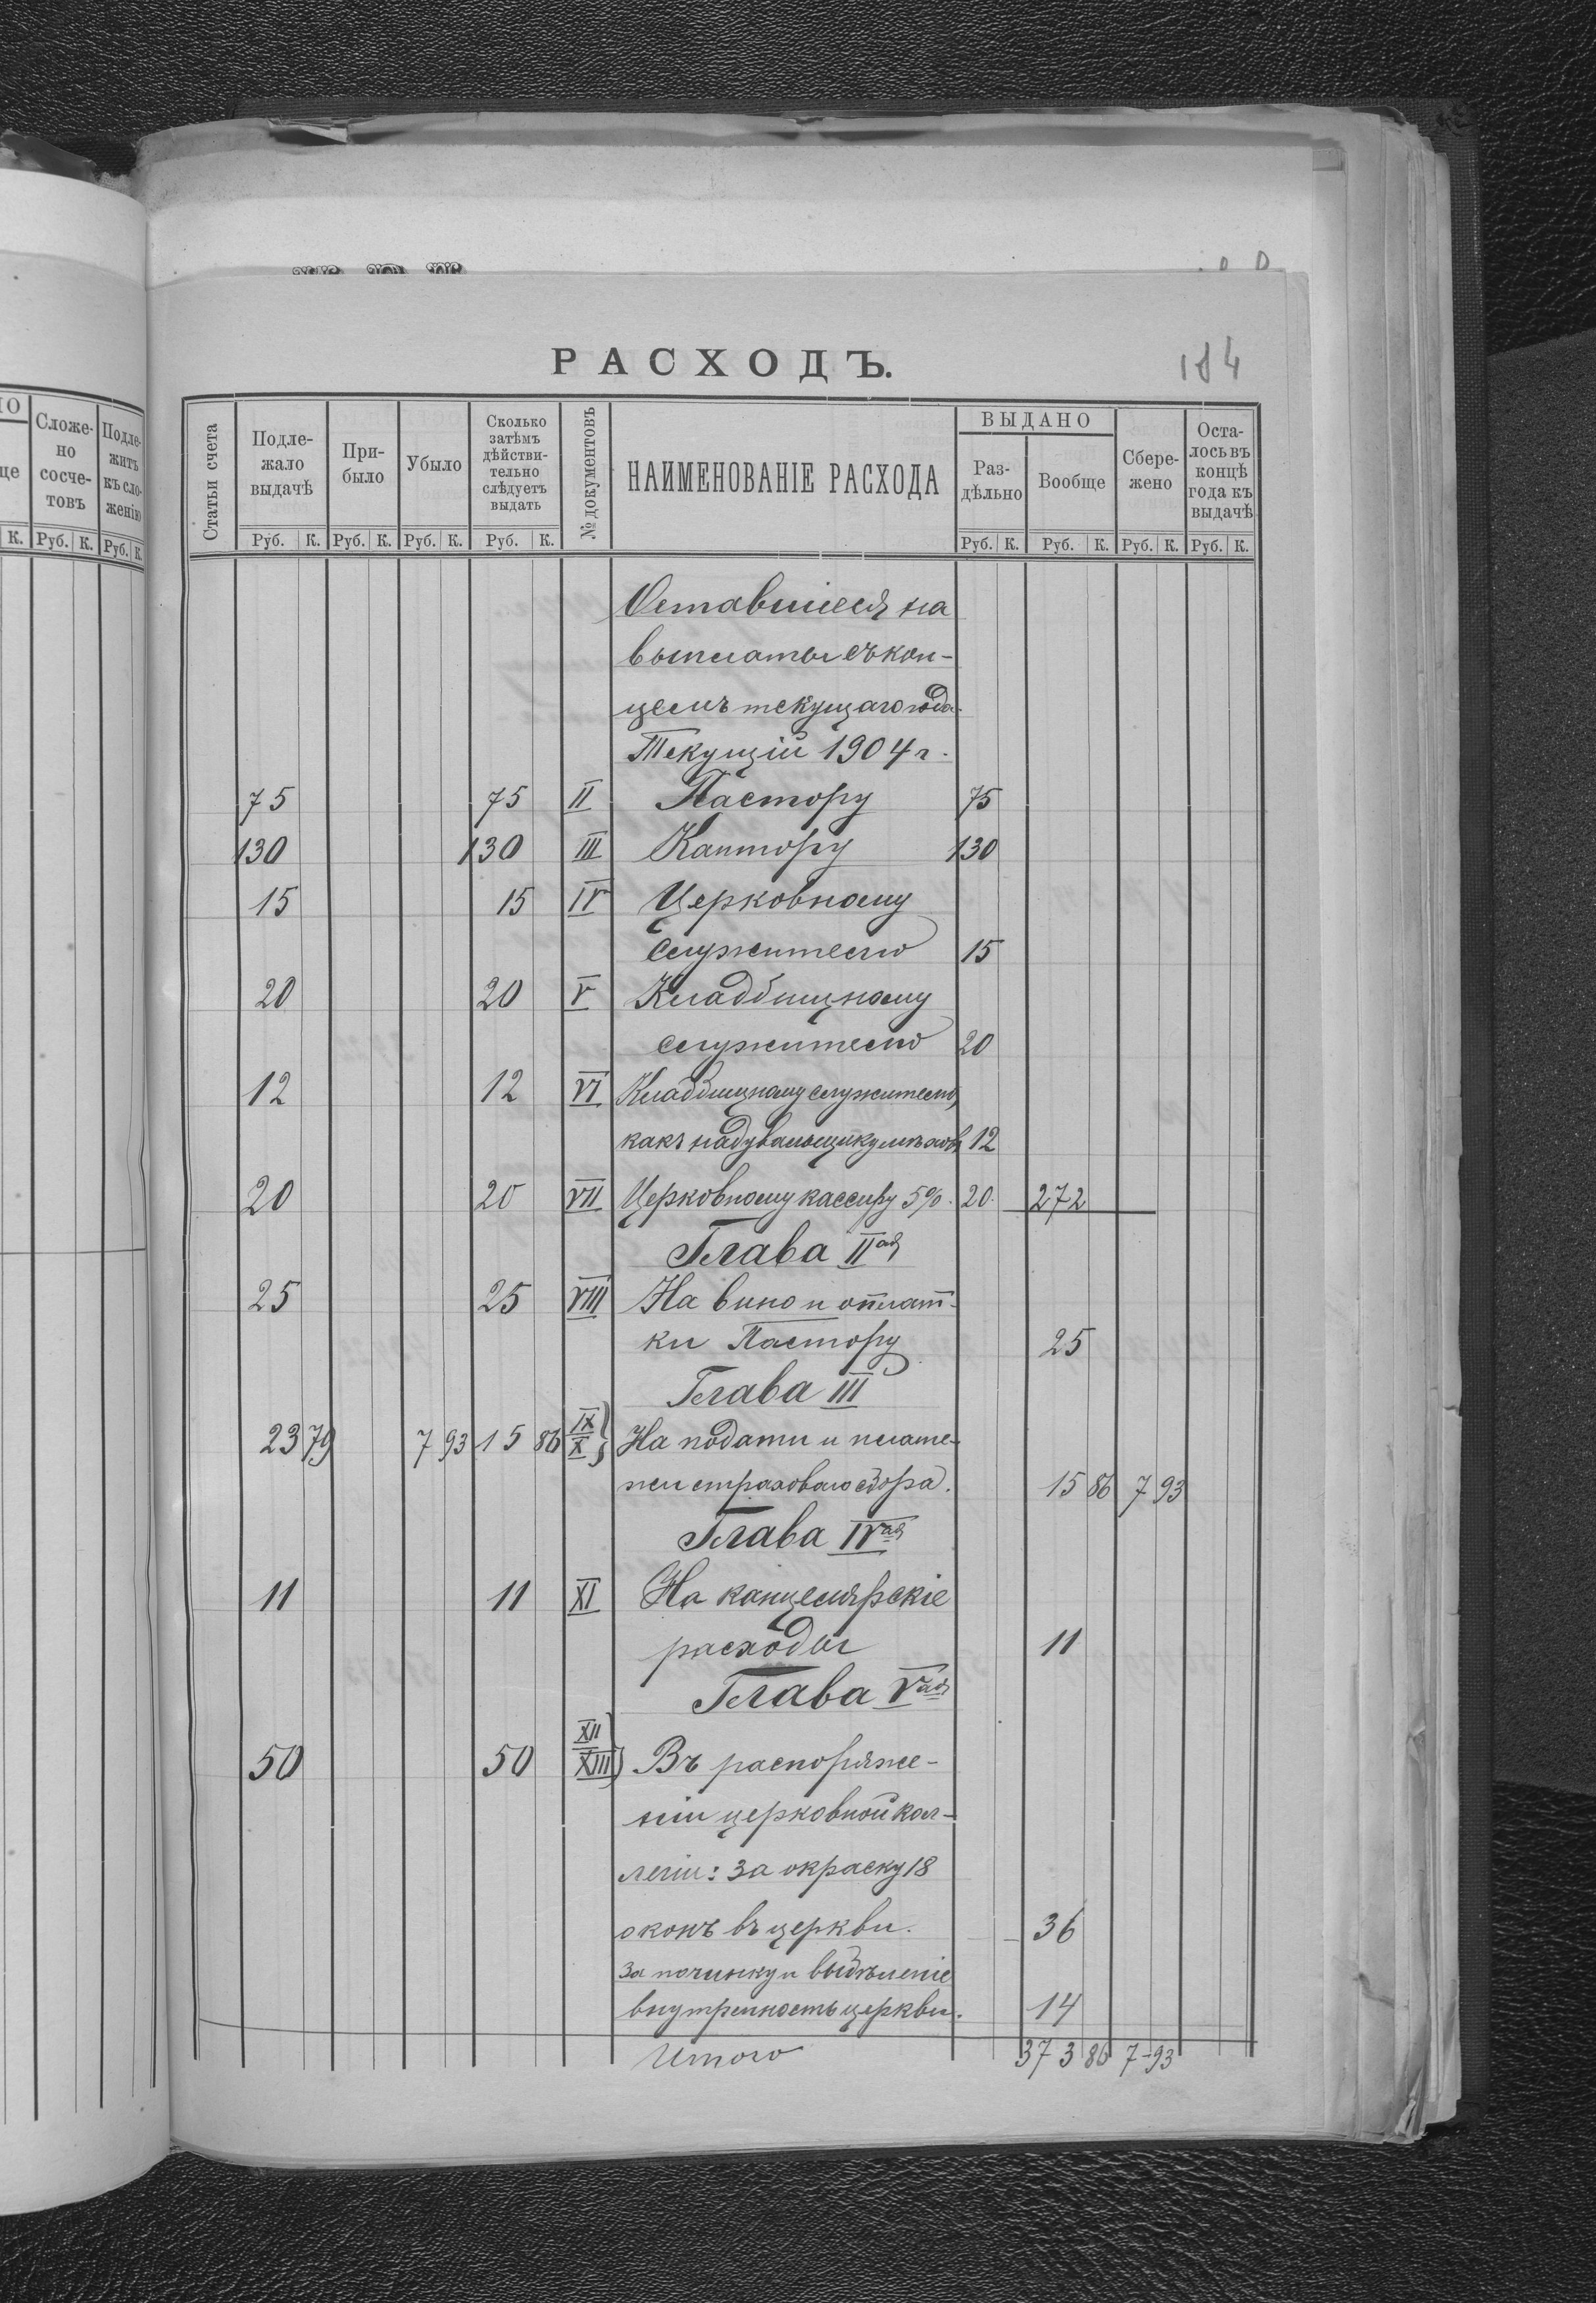 РАСХОДЪ.
184
Статьи счета
Подле-
жало
выдачѣ
При-
было
Убыло
Сколько
затѣмъ
дѣйстви-
тельно
слѣдуетъ
выдать
№ документовъ
НАИМЕНОВАНІЕ РАСХОДА
ВЫДАНО
Раз-
дѣльно
Вообще
Сбере-
жено
Оста-
лось въ
концѣ
года къ
выдачѣ
Руб. К. Руб. К. Руб. К. Руб. К. Руб. К. Руб. К. Руб. К. Руб. К.
Сложе-
но
сосче-
товъ
Подле-
житъ
къ сло-
женію
К. Руб. К. Руб. К.
Оставшіеся на
выплаты съ кон-
цемъ текущаго года
Текущій 1904 г.
75 75 II Пастору 75
130 130 III Кантору 130
15 15 IV Церковному
служителю 15
20 20 V Кладбищному
служителю 20
12 12 VI Кладбищному служителю,
какъ надувальщику мѣховъ 12
20 20 VII Церковному кассиру 5%. 20. 272
Глава IIая
25 25 VIII На вино и оплат-
ки Пастору 25
Глава III
23 79 7 93 15 86 IX X } На подати и плате-
жи страховаго сбора. 15 86 7 93
Глава IVая
11 11 XI На канцелярскіе
расходы 11
Глава Vая
50 50 XII XIII } Въ распоряже-
ніи церковной кол-
легіи: за окраску 18
оконъ въ церкви. 36
За починку и выбѣленіе
внутренность церкви. 14
Итого 373 86 7-93